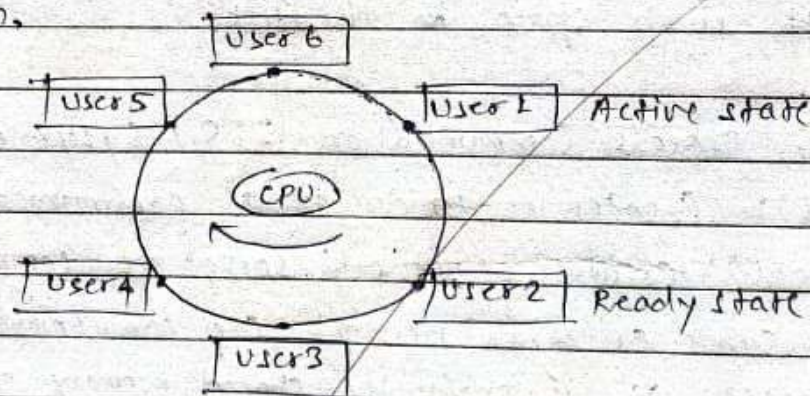 User 6
User 5
User 1 Active state
CPU
User 4
User 2 Ready state
User 3